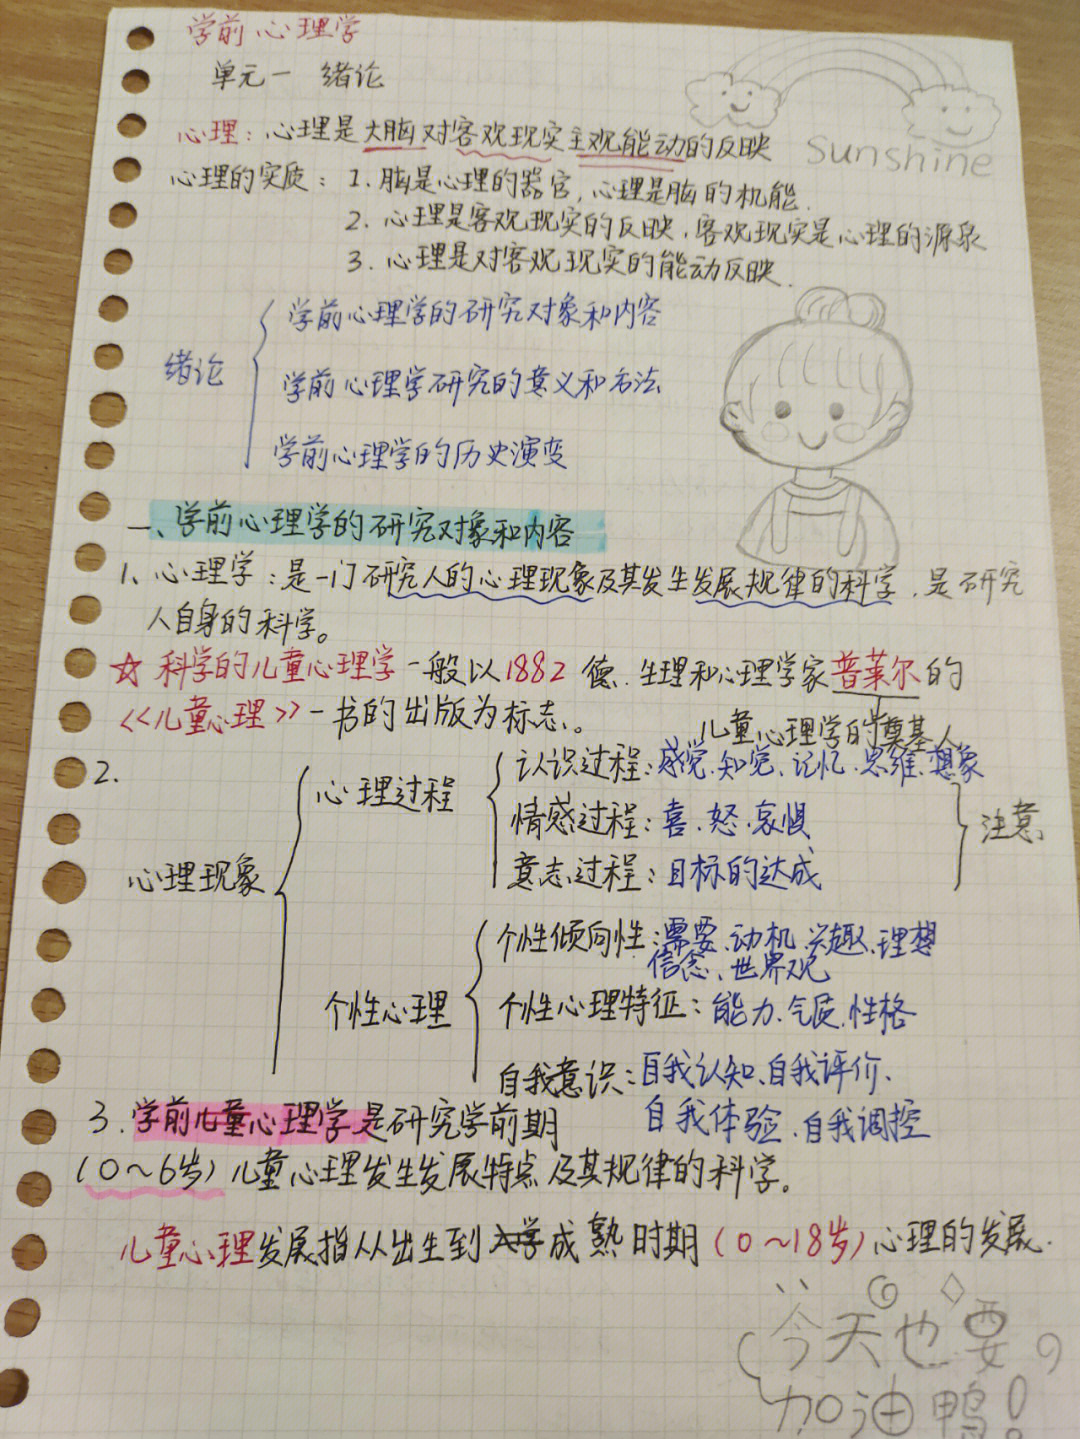 学前心理学
单元一 绪论
心理：心理是大脑对客观现实主观能动的反映
Sunshine
心理的实质：1. 脑是心理的器官，心理是脑的机能.
2. 心理是客观现实的反映，客观现实是心理的源泉
3. 心理是对客观现实的能动反映.
绪论
学前心理学的研究对象和内容
学前心理学研究的意义和方法
学前心理学的历史演变
一、学前心理学的研究对象和内容
1、心理学：是一门研究人的心理现象及其发生发展规律的科学，是研究
人自身的科学。
☆ 科学的儿童心理学一般以1882 德.生理和心理学家普莱尔的
<<儿童心理>>一书的出版为标志。
儿童心理学的奠基人
2.
心理现象
心理过程
认识过程：感觉.知觉.记忆.思维.想象
情感过程：喜.怒.哀惧
意志过程：目标的达成
注意
个性心理
个性倾向性：需要.动机.兴趣.理想
信念、世界观
个性心理特征：能力.气质.性格
自我意识：自我认知、自我评价.
自我体验.自我调控
3. 学前儿童心理学是研究学前期
(0~6岁)儿童心理发生发展特点及其规律的科学。
儿童心理发展指从出生到入学成熟时期(0~18岁)心理的发展.
今天也要
加油鸭!